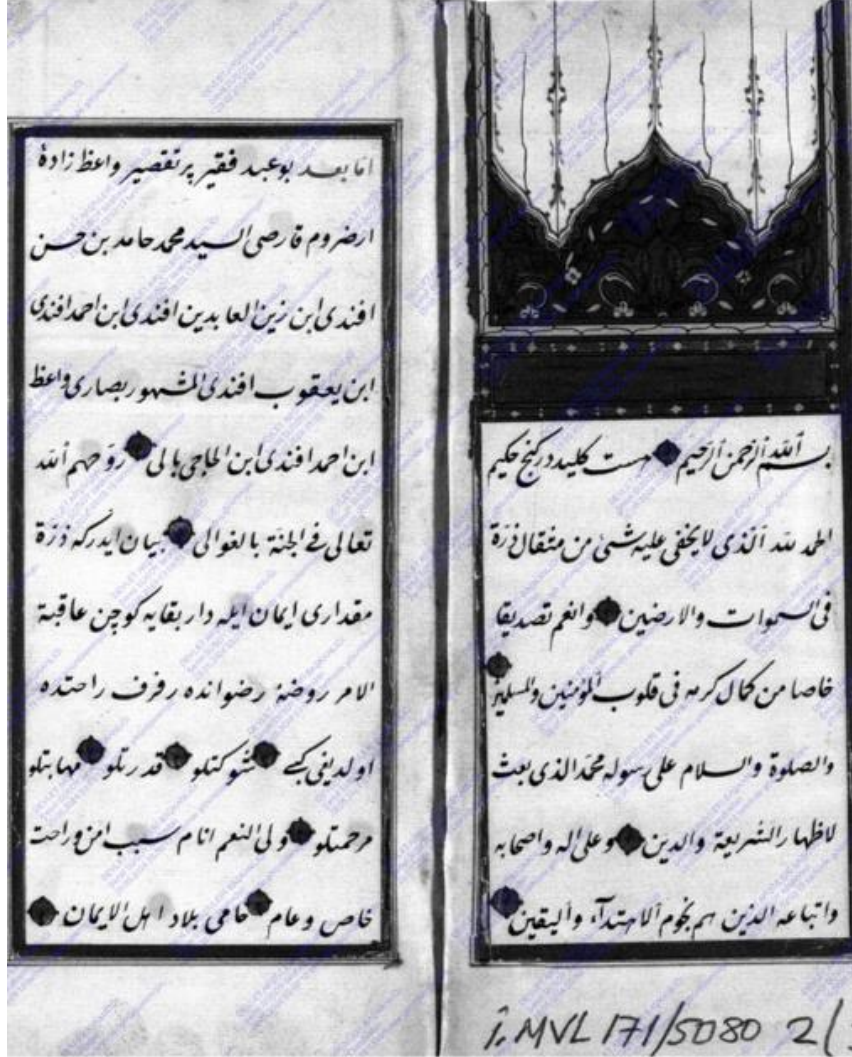 بسم الله الرحمن الرحيم هست كليد در كنج حكيم
الحمد لله الذى لا يخفى عليه شئ من مثقال ذرة
فى السموات والارضين وانعم تصديقا
خاصا من كمال كرمه فى قلوب المؤمنين والمسلمين
والصلوة والسلام على رسوله محمد الذى بعث
لاظهار الشريعة والدين وعلى اله واصحابه
واتباعه الذين هم نجوم الاهتدآء واليقين
اما بعد بو عبد فقير پر تقصير واعظ زادهٔ
ارضروم قارصى السيد محمد حامد بن حسن
افندى ابن زين العابدين افندى ابن احمد افندى
ابن يعقوب افندى المشهور بصارى واعظ
ابن احمد افندى ابن الحاجى بالى روّحهم الله
تعالى فى الجنة بالغوالى بيان ايدركه ذرّة
مقدارى ايمان ايله دار بقايه كوچن عاقبة
الامر روضهٔ رضوانده رفرف راحتده
اولديغى كبى شوكتلو قدرتلو مهابتلو
مرحمتلو ولى النعم انام سبب امن وراحت
خاص وعام حامى بلاد اهل الايمان
İ. MVL 171/5080 2/